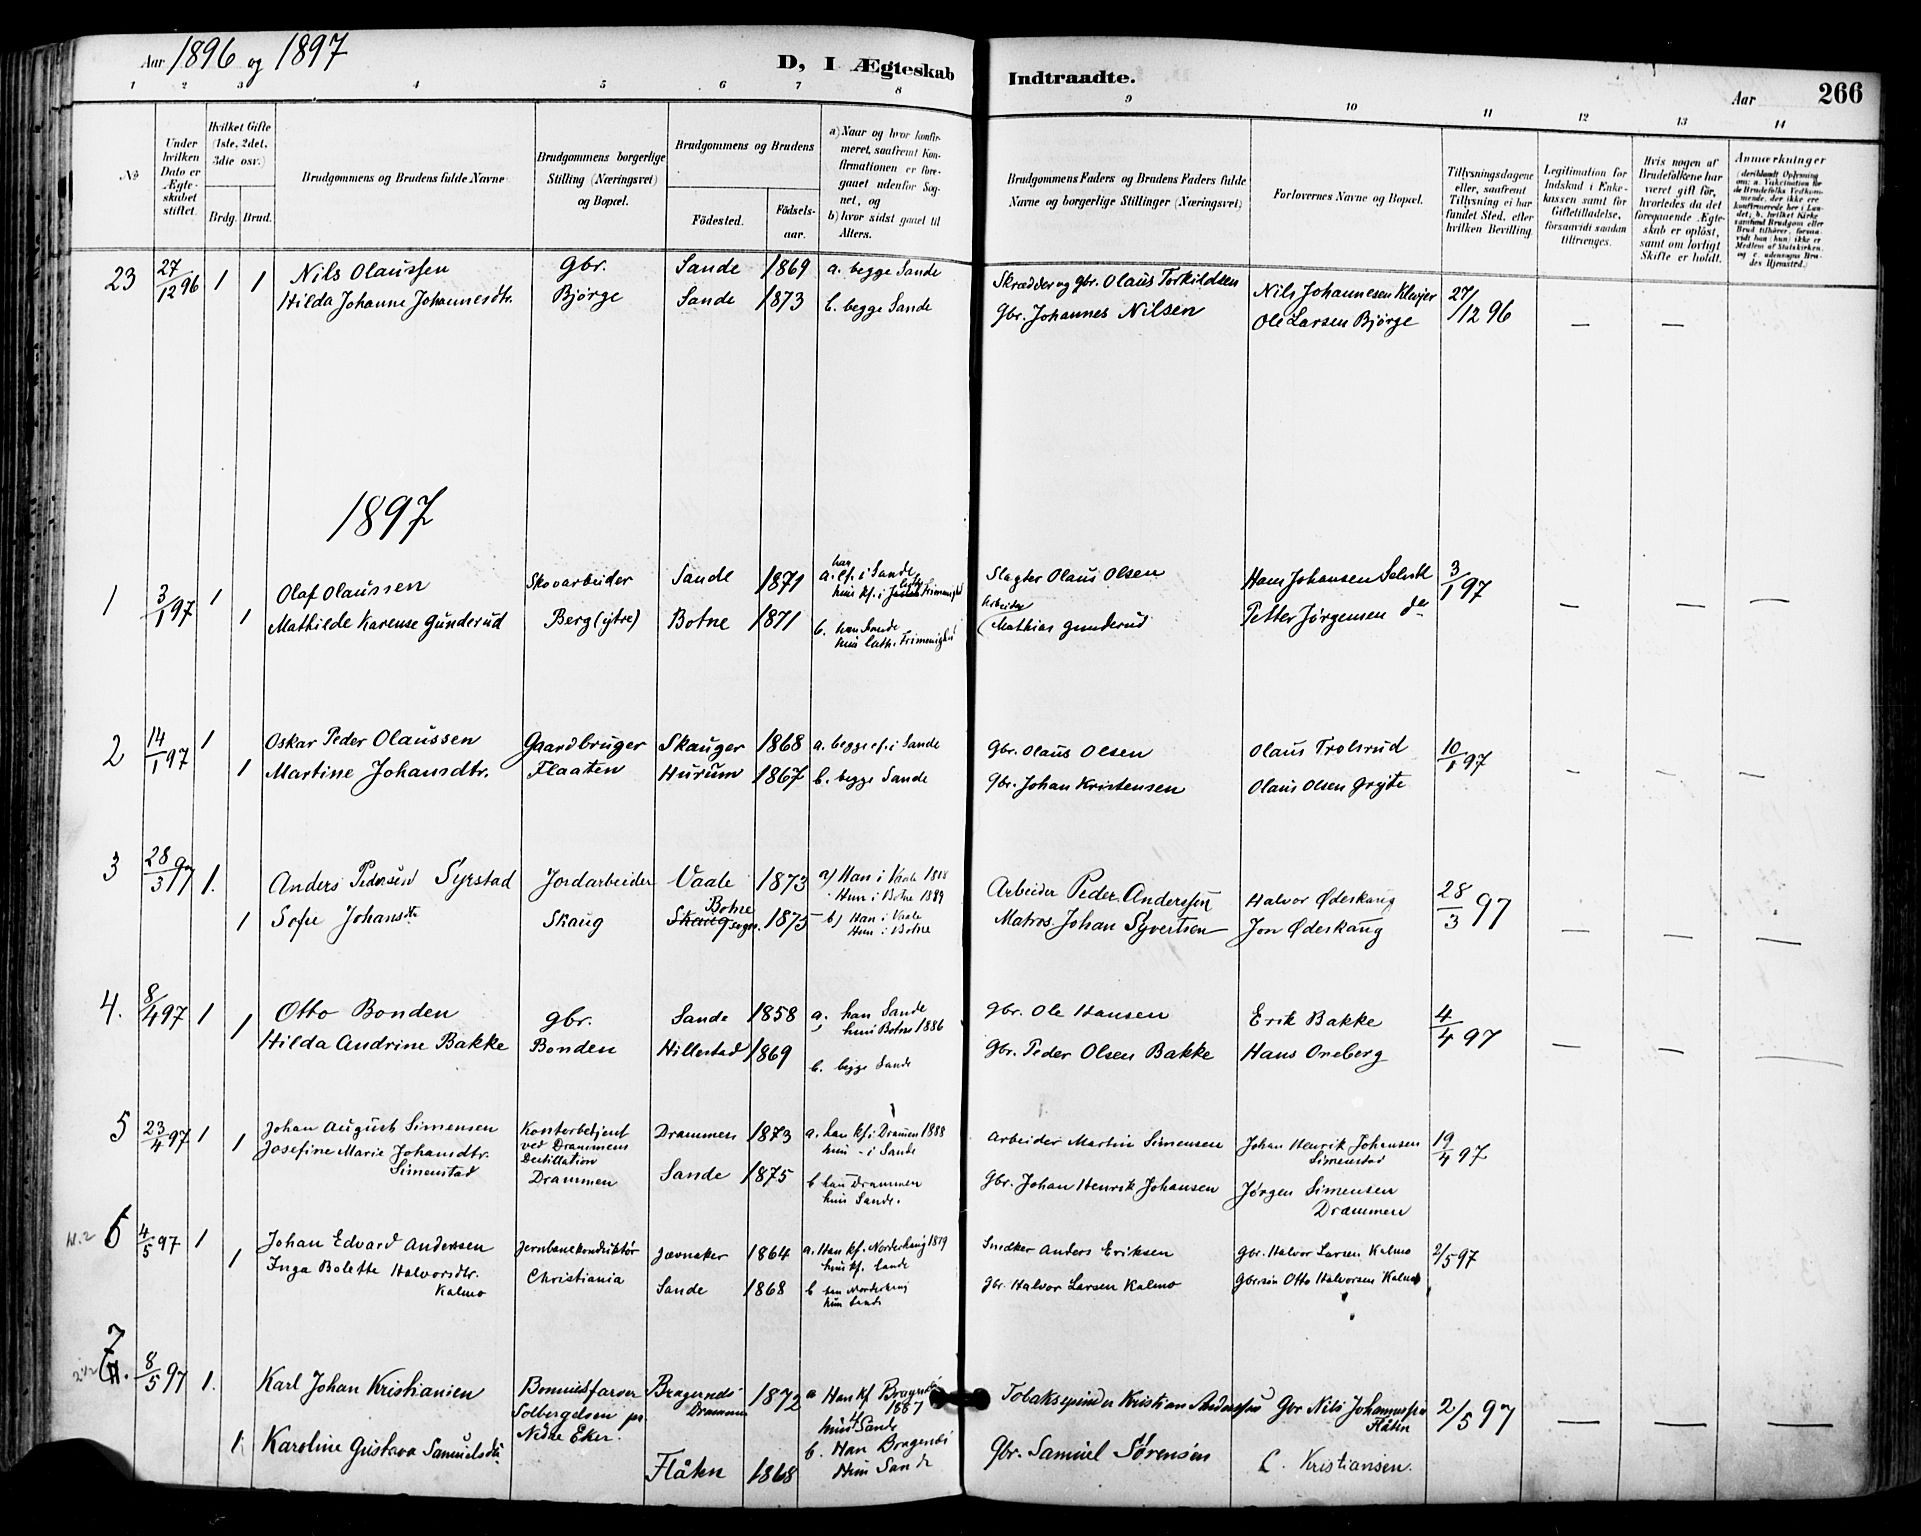 Aar 1896 og 1897
D, I Ægteskab Indtraadte.
Aar 266
1 2 3 4 5 6 7 8 9 10 11 12 13 14
No
Under hvilken Dato er Ægteskabet stiftet.
Hvilket Gifte (1ste, 2det, 3die osv.)
Brdg. Brud.
Brudgommens og Brudens fulde Navne
Brudgommens borgerlige Stilling (Næringsvei) og Bopæl.
Brudgommens og Brudens
Födested. Födsels-aar.
a) Naar og hvor konfirmeret, saafremt Konfirmationen er foregaaet udenfor Sognet, og b) hvor sidst gaaet til Alters.
Brudgommens Faders og Brudens Faders fulde Navne og borgerlige Stillinger (Næringsvei)
Forlovernes Navne og Bopæl.
Tillysningsdagene eller, saafremt Tillysning ei har fundet Sted, efter hvilken Bevilling.
Legitimation for Indskud i Enkekassen samt for Giftetilladelse, forsaavidt saadan tiltrænges.
Hvis nogen af Brudefolkene har været gift för, hvorledes da det foregaaende Ægteskab er oplöst, samt om lovligt Skifte er holdt.
Anmærkninger
23 27/12 96 1 Nils Olaussen gbr. Sande 1869 a. begge Sande Skrædder og gbr. Olaus Torkildsen Nils Johannesen Klevjer 27/12 96 — —
1 Hilda Johanne Johannesdtr. Bjørge Sande 1873 b. begge Sande gbr. Johannes Nilsen Ole Larsen Bjørge
1897
1 3/1 97 1 Olaf Olaussen Skovarbeider Sande 1871 a. han cf. i Sande Slagter Olaus Olsen Hans Johansen Selvik 3/1 97 — — —
1 Mathilde Karense Gunderud Berg (ytre) Botne 1871 b. han Sande Arbeider Mathias Gunderud Petter Jørgensen do
2 14/1 97 1 Oskar Peder Olaussen Gaardbruger Skauger 1868 a. begge cf. i Sande Gbr. Olaus Olsen Olaus Trolsrud 10/1 97 — — —
1 Martine Johansdtr. Flaaten Hurum 1867 b. begge Sande Gbr. Johan Kristensen Olaus Olsen Gryte
3 28/3 97 1. Anders Pedersen Syrstad Jordarbeider Vaale 1873 a) Han i Vaale 1888 Hun i Botne 1889 Arbeider Peder Anderssen Halvor Ødeskaug 28/3 97 — — —
1 Sofie Johansdtr Skaug Botne sogn. 1875 b) Han i Vaale Hun i Botne Matros Johan Syvertsen Jon Ødeskaug
4. 8/4 97 1 Otto Bonden gbr. Sande 1858 a. han Sande hun Botne 1886 gbr. Ole Hansen Erik Bakke 4/4 97 — — —
1 Hilda Andrine Bakke Bonden Hillestad 1869 b. begge Sande gbr. Peder Olsen Bakke Hans Oneberg
5 23/4 97 1 Johan August Simensen Kontorbetjent ved Drammens Destillation Drammen 1873 a. han kf. i Drammen 1888 hun - i Sande Arbeider Martin Simensen Johan Henrik Johansen Simenstad 19/4 97
1 Josefine Marie Johansdtr. Simenstad Drammen Sande 1875 b han Drammen hun Sande. gbr. Johan Henrik Johansen Jørgen Simensen Drammen
6 4/5 97 1 Johan Edvard Andersen Jernbanekonduktør Jævnaker 1864 a. Han kf. Norderhaug 1879 hun kf. Sande Snedker Anders Eriksen Gbr. Halvor Larsen Kalmo 2/5 97
1 Inga Bolette Halvorsdtr. Kalmo Christiania Sande 1868 b han Norderhaug hun Sande gbr. Halvor Larsen Kalmo Gbrsøn Otto Halvorsen Kalmo
7 8/5 97 1. Karl Johan Kristiansen Bomuldsfarver Bragernes Drammen 1872 a Han kf Bragernes 1887 hun Sande Tobaksspinder Kristian Anderssen Gbr Nils Johannessen Flåtin 2/5 97 — — —
1 Karoline Gustava Samuelsdtr Solbergelven pr. Nedre Eker. Flåten 1868 b. Han Bragernes Hun Sande Gbr. Samuel Sørensen C. Kristiansen.